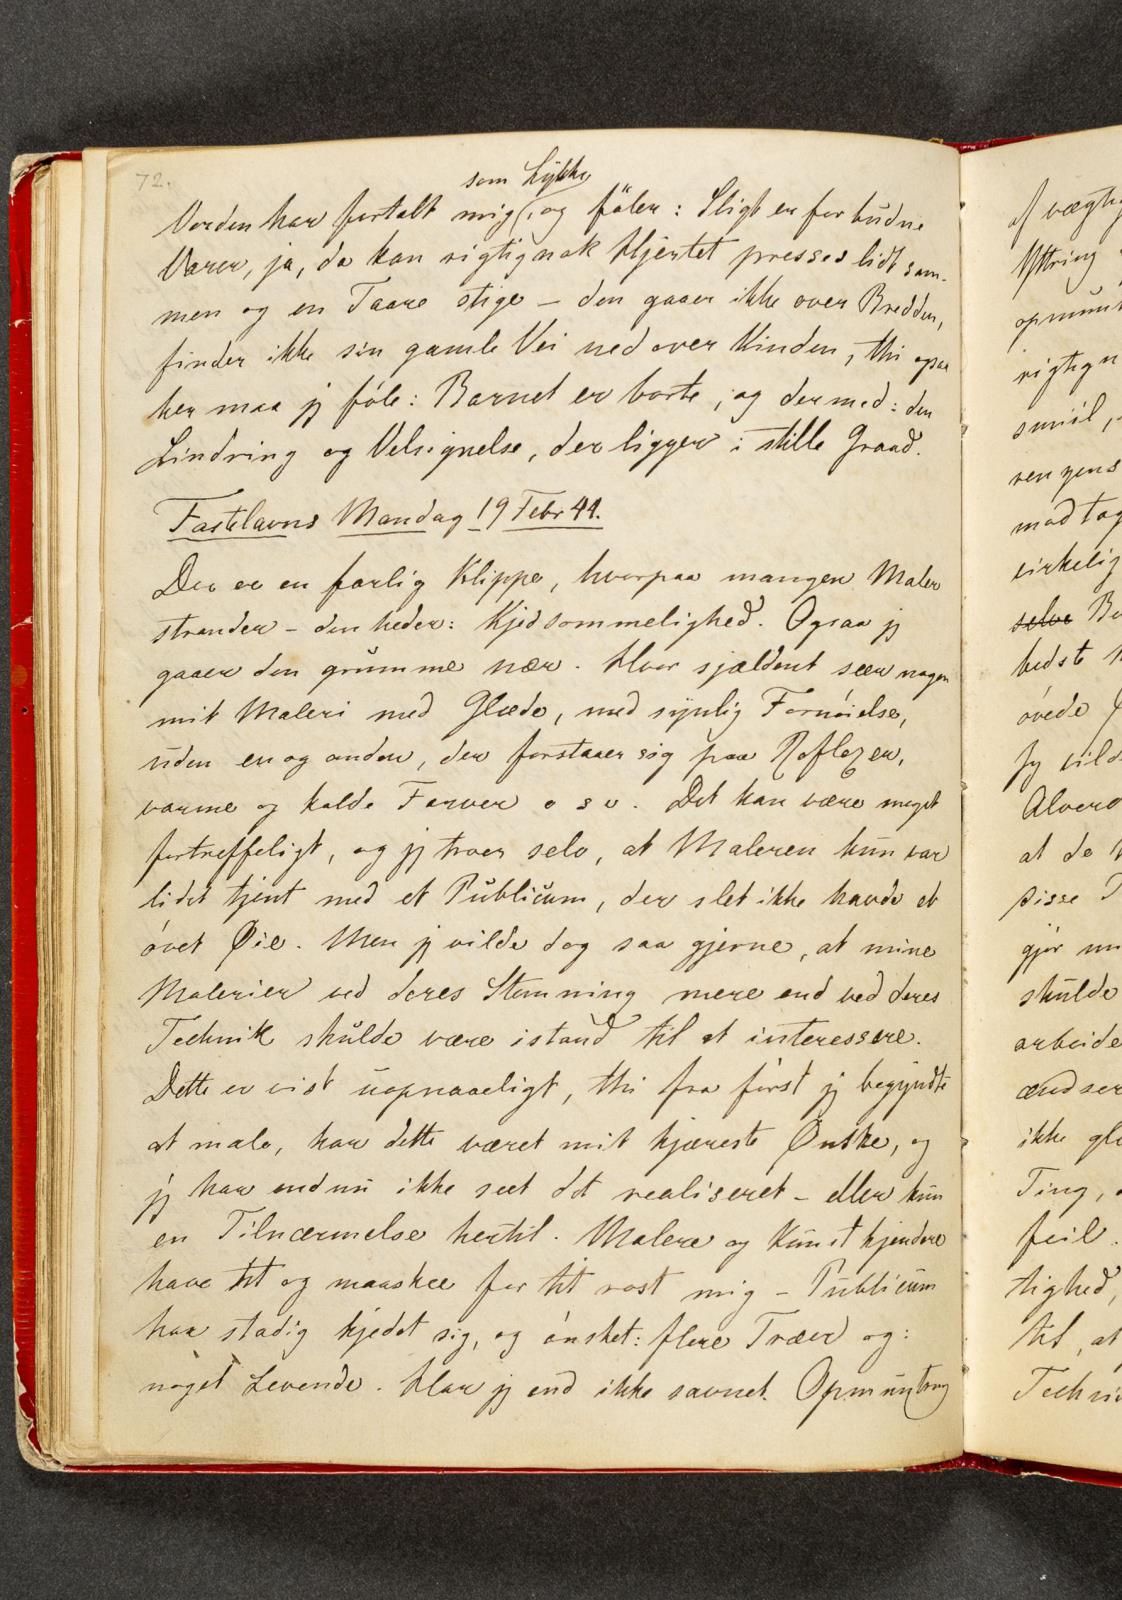 72.
som Lykke
Verden har fortalt mig, og föler: Sligt er forbudne
Varer, ja, da kan rigtignok Hjertet presses lidt sam-
men og en Taare stige – den gaaer ikke over Bredden,
finder ikke sin gamle Vei ned over Kinden, thi ogsaa
her maa jeg föle: Barnet er borte, og dermed: den
Lindring og Velsignelse, der ligger i stille Graad.
Fastelavns Mandag 19 Febr 44.
Der er en farlig Klippe, hvorpaa mangen Maler
strander – den heder: Kjedsommelighed. Ogsaa jeg
gaaer den grumme nær. Hvor sjældent seer nogen
mit Maleri med Glæde, med synlig Fornöielse,
uden en og anden, der forstaaer sig paa Reflexer,
varme og kolde Farver o s v. Det kan være meget
fortreffeligt, og jeg troer selv, at Maleren kun var
lidet tjent med et Publicum, der slet ikke havde et
övet Øie. Men jeg vilde dog saa gjerne, at mine
Malerier ved deres Stemning mere end ved deres
Technik skulde være istand til at interessere.
Dette er vist uopnaaeligt, thi fra först jeg begyndte
at male, har dette været mit kjæreste Ønske, og
jeg har endnu ikke seet det realiseret – eller kun
en Tilnærmelse hertil. Malere og Kunstkjendere
have tit og maaskee for tit rost mig – Publicum
har stadig kjedet sig, og önsket: flere Træer og:
noget Levende. Har jeg end ikke savnet Opmuntring
af vægtig
Yttring
opmunt
rigtign
smiil,
rensens
modtag
virkelig
selve Be
bedste
övede
Jeg vild
Alvero
at de
disse
gjör
skulde
arbeide
ændser
ikke gl
Ting,
feil.
tighed,
tit, at
Techni